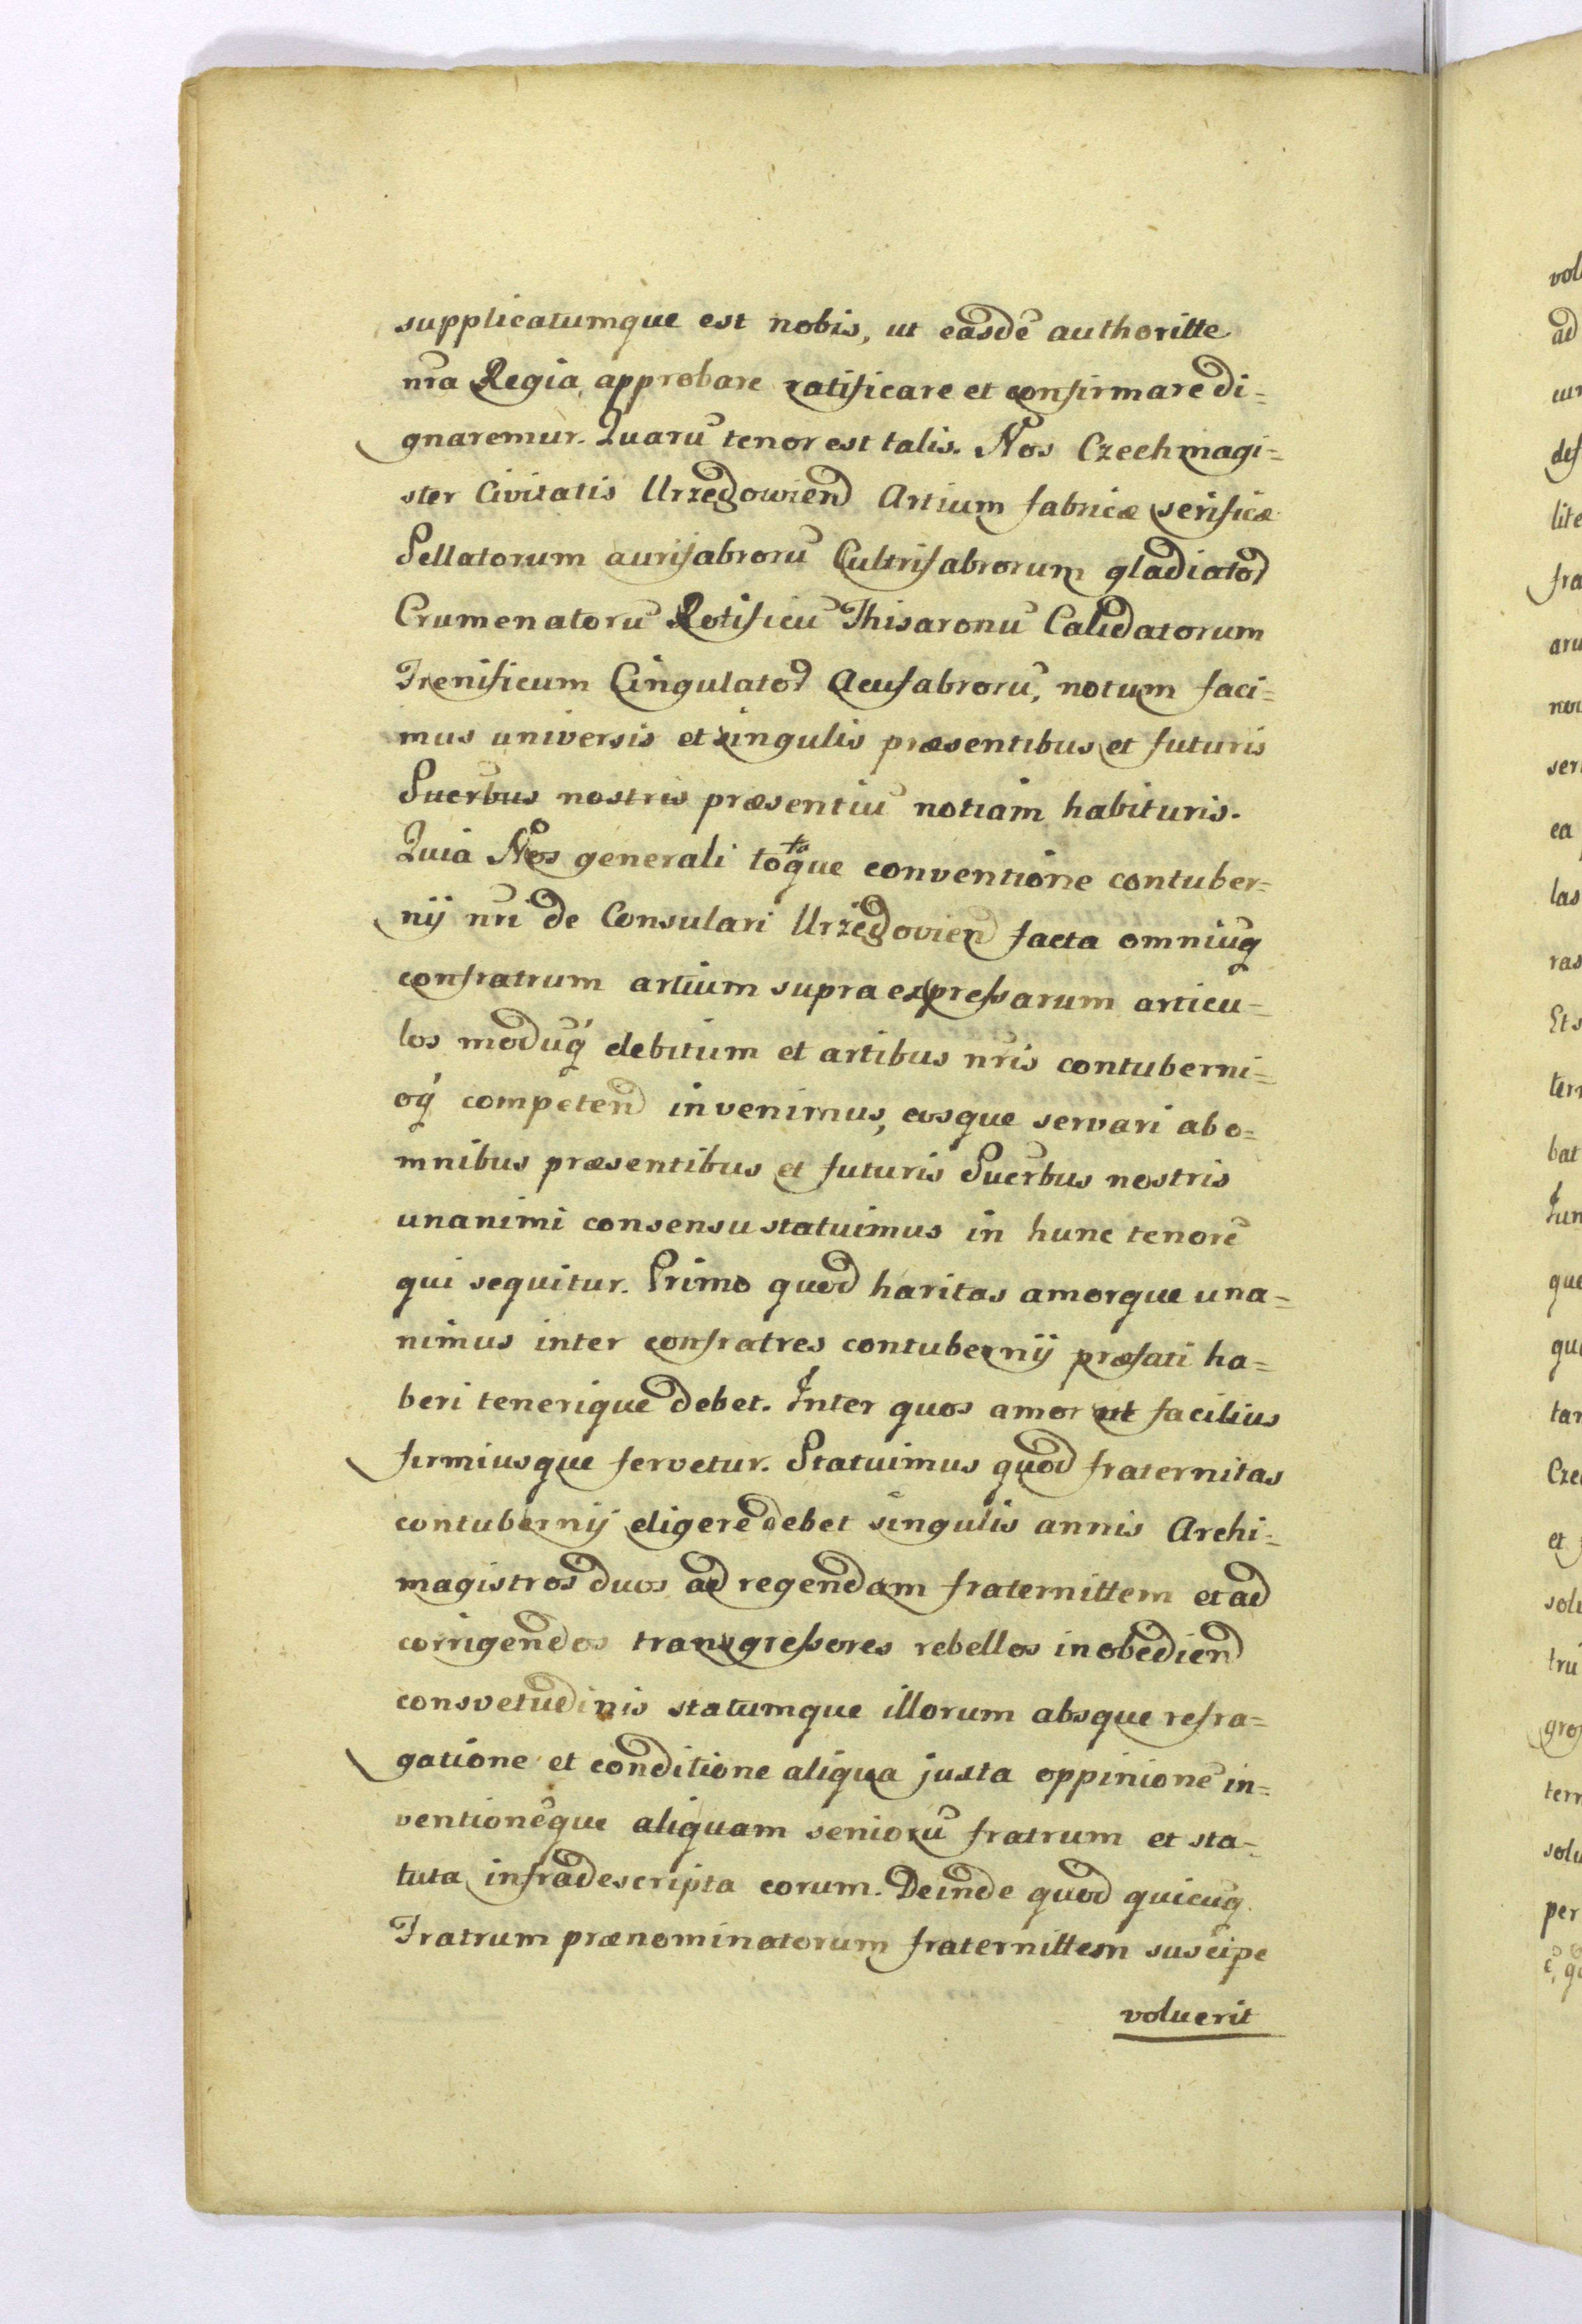 supplicatumque est nobis, ut easdē authoritte
nr̄a Regia, approbare ratificare et confirmare di=
gnaremur. Quarū tenor est talis. Nos Czechmagi=
ster Civitatis Urzędowień Artium fabricæ serificæ
Sellatorum aurifabrorū Cultrifabrorum gladiator
Crumenatorū Rotificū Thisaronū Calidatorum
Frenificum Cingulator Acufabrorū, notum faci=
mus universis et singulis præsentibus et futuris
Sucr̄bus nostris præsentiū notiam habituris.
Quia Nos generali totaque conventione contuber=
nij nr̄i de Consulari Urzędovień facta omniūq
confratrum artium supra expressarum articu=
los modūq́ debitum et artibus nr̄is contuberni=
oq́ competen invenimus, eosque servari ab o=
mnibus præsentibus et futuris Sucr̄bus nostris
unanimi consensu statuimus in hunc tenorē
qui sequitur. Primo quod haritas amorque una=
nimus inter confratres contubernij præfati ha=
beri tenerique debet. Inter quos amor ut facilius
firmiusque servetur. Statuimus quod fraternitas
contubernij eligere debet singulis annis Archi=
magistros duos ad regendam fraternittem et ad
corrigendos transgressores rebellos inobedien
consvetudinis statumque illorum absque refra=
gatione et conditione aliqua justa oppinionē in=
ventionēque aliquam seniorū fratrum et sta=
tuta infradescripta eorum. Deinde quod quicūq
Fratrum prænominatorum fraternittem suscipe
voluerit